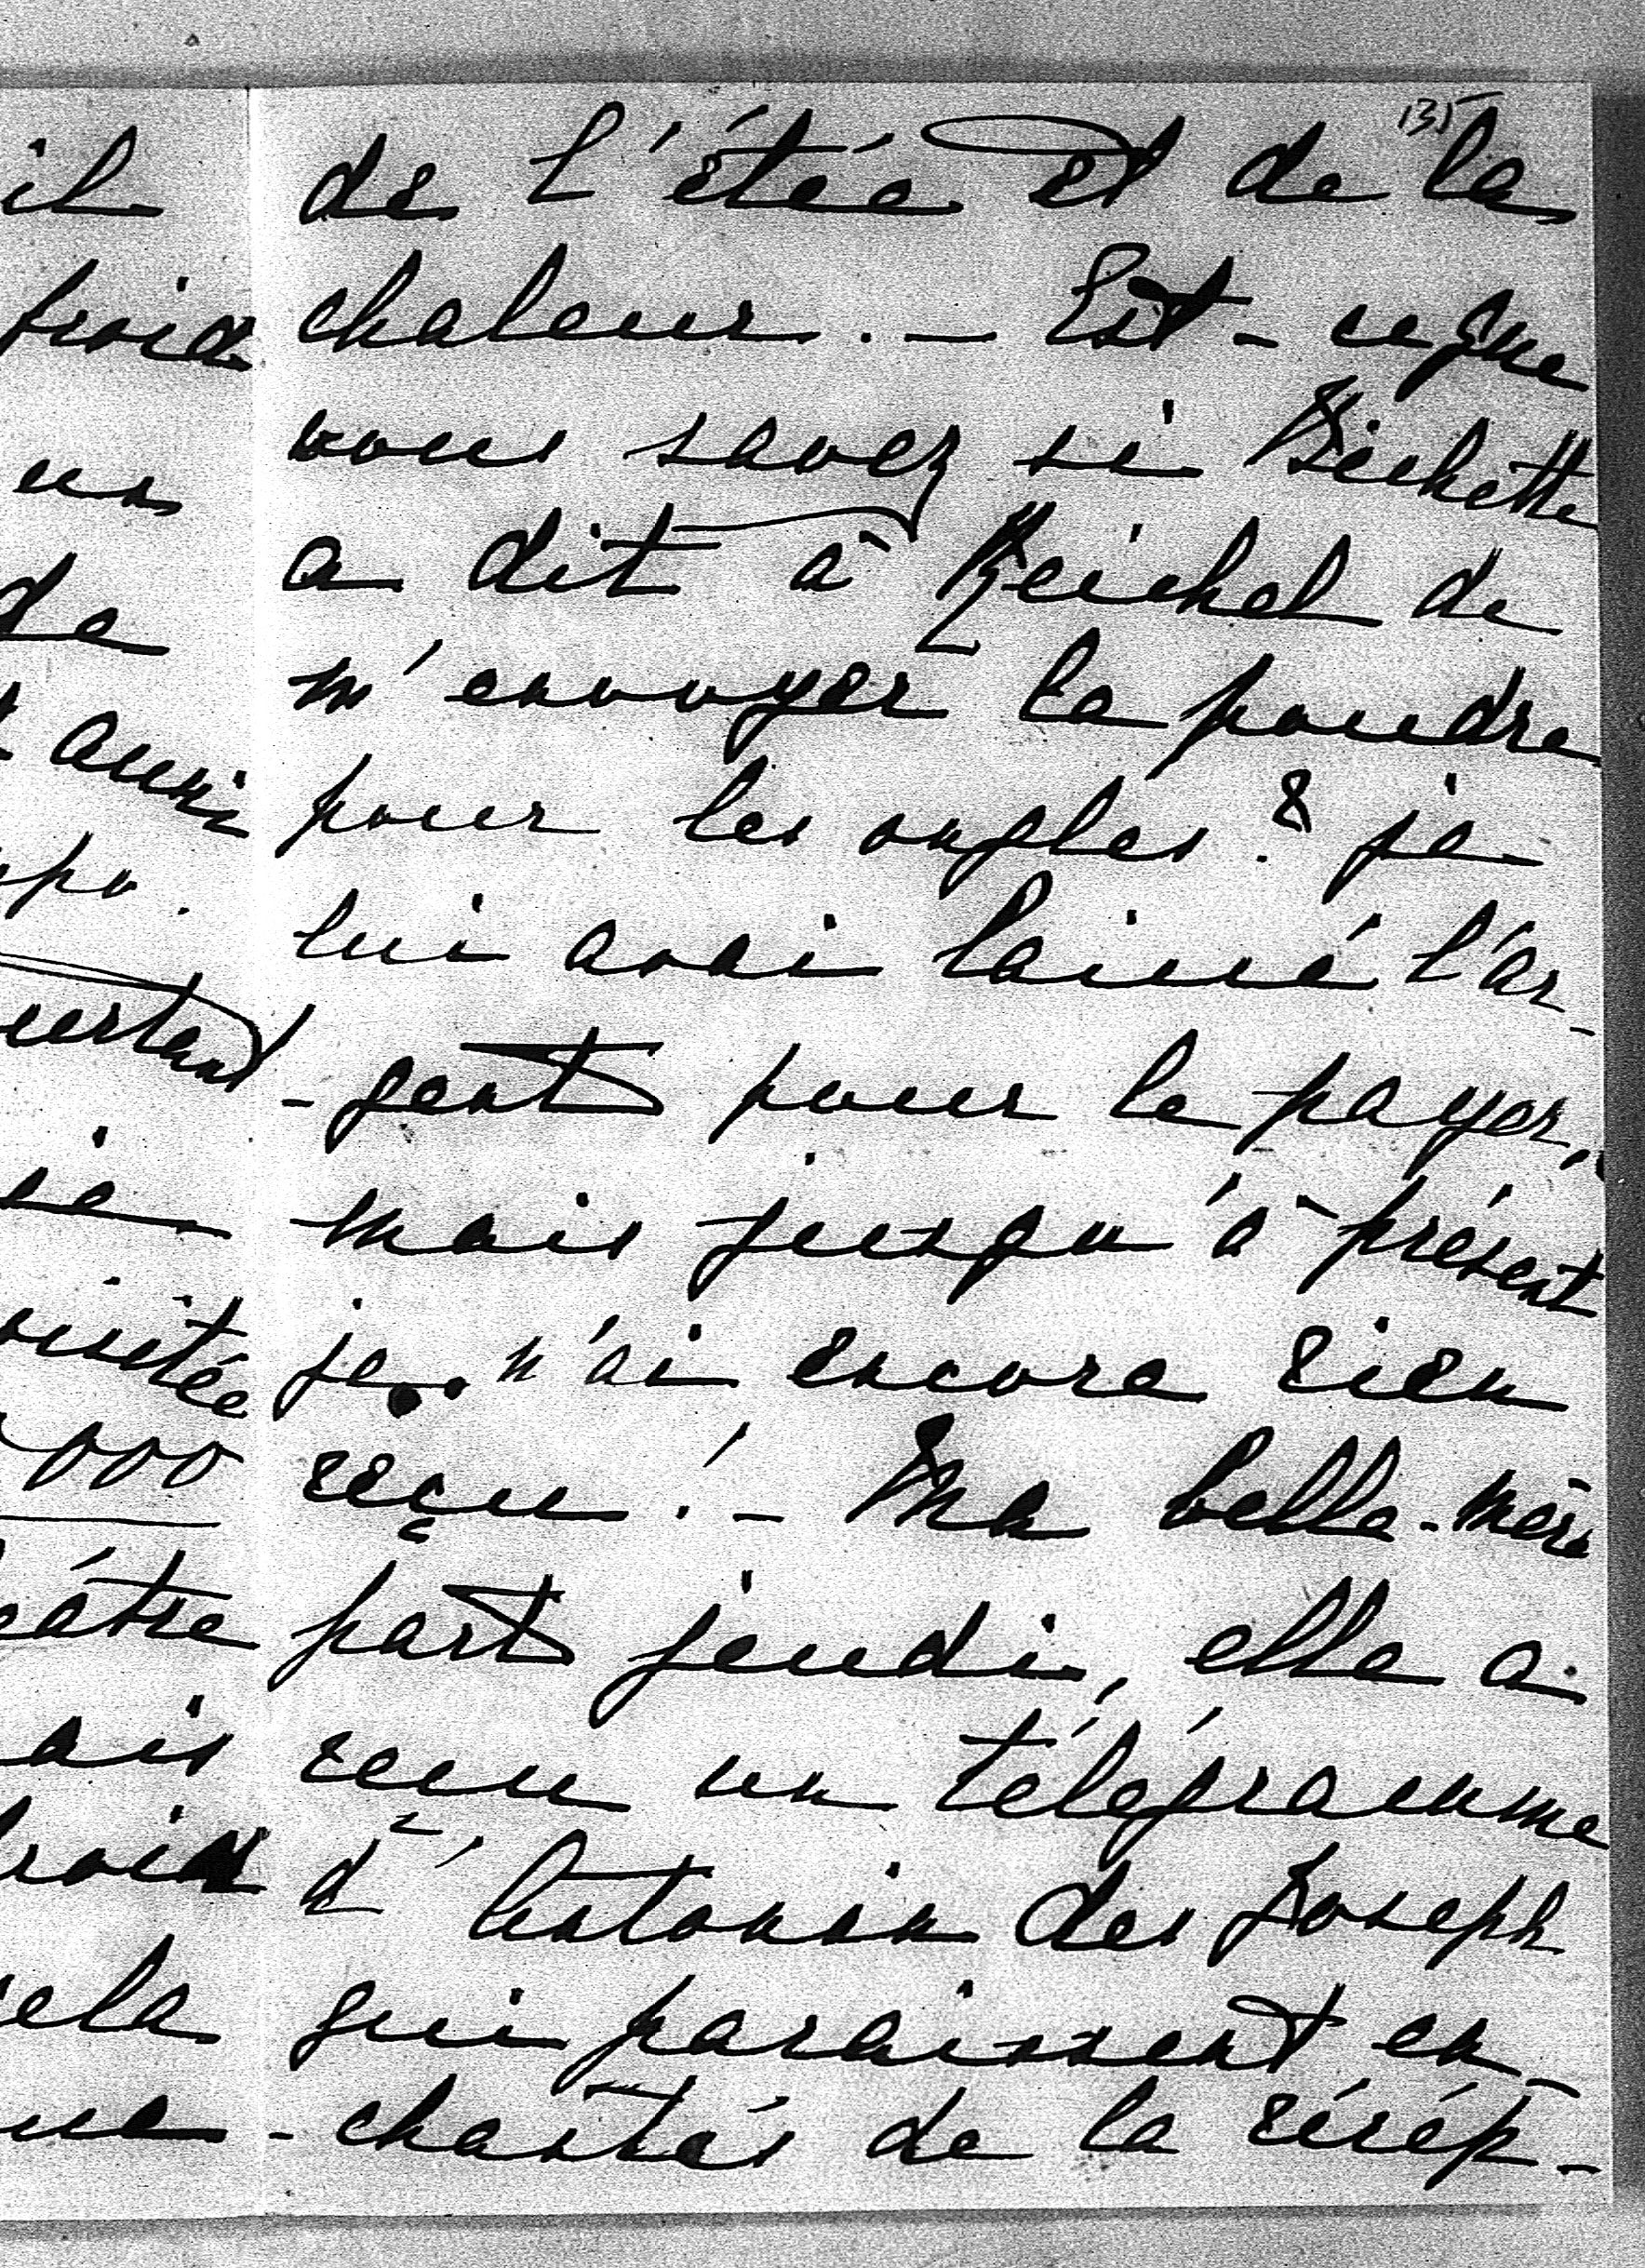 il
froid
un
de
aussi
ourtant
ie
visitée
000
éâtre
ais
froid
cela
ue
135
de l'étée et de la
chaleur. — Est-ce que
vous savez si Michette
a dit à Reichel de
m'envoyer la poudre
pour les ongles? je
lui avai laissé l'ar-
-gent pour le payer,
mais jusqu'à présent
je n'ai encore rien
reçu! — Ma belle-mère
part jeudi, elle a
reçu un télégramme
d'Antonin des Joseph
qui paraissent en-
-chantés de la récép-